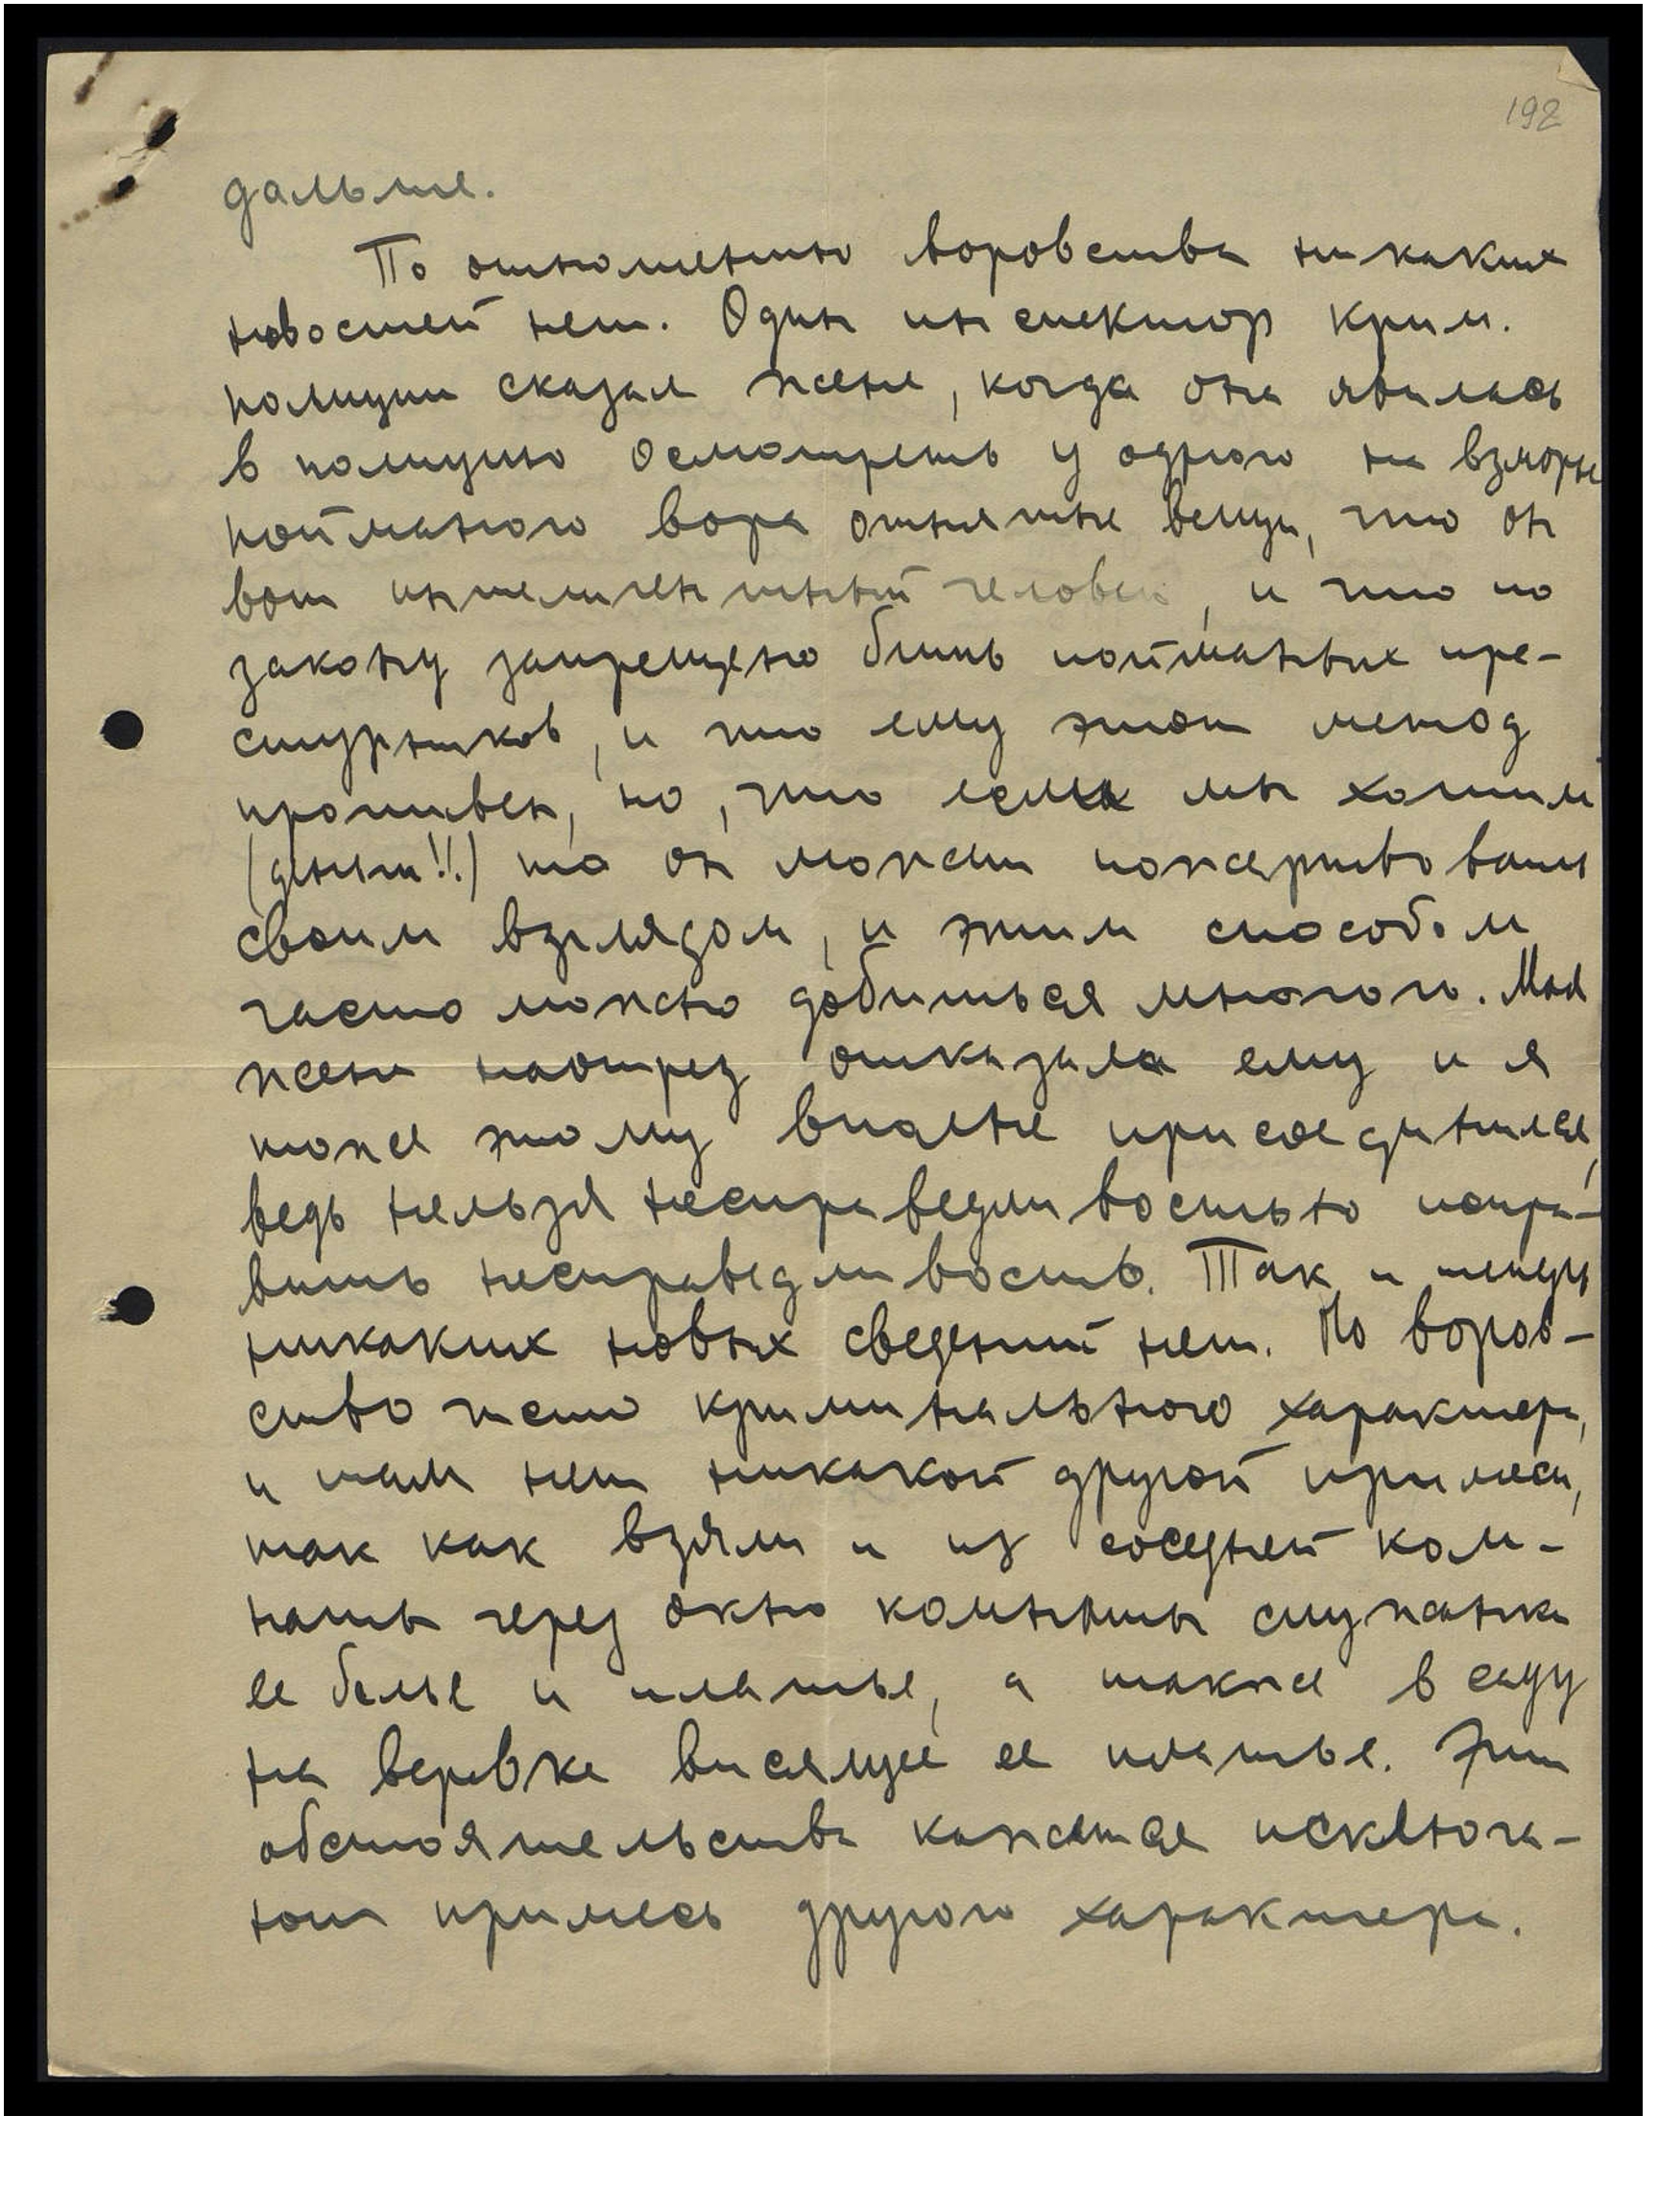 192
дальше.
По отношению воровства никаких
новостей нет. Один инспектор крим.
полиции сказал жене, когда она явилась
в полицию осмотреть у одного на взморье
пойманого вора отнятые вещи, что он
вот интелигентный человек, и что по
закону запрещено бить пойманных пре-
ступников, и что ему этот метод
противен, но, что если мы хотим
(деньги!!) то он может пожертвовать
своим взглядом, и этим способом
часто можно добиться многого. Моя
жена наотрез отказала ему и я
тоже этому вполне присоединился,
ведь нельзя несправедливостью испра-
вить несправедливость. Так и теперь
никаких новых сведений нет. Но воров-
ство чисто криминального характера,
и там нет никакой другой примеси,
так как взяли и из соседней ком-
наты через окно комнаты служанки
ее белье и платье, а также в саду
на веревке висящее ее платье. Эти
обстоятельства кажется исключа-
ют примесь другого характера.